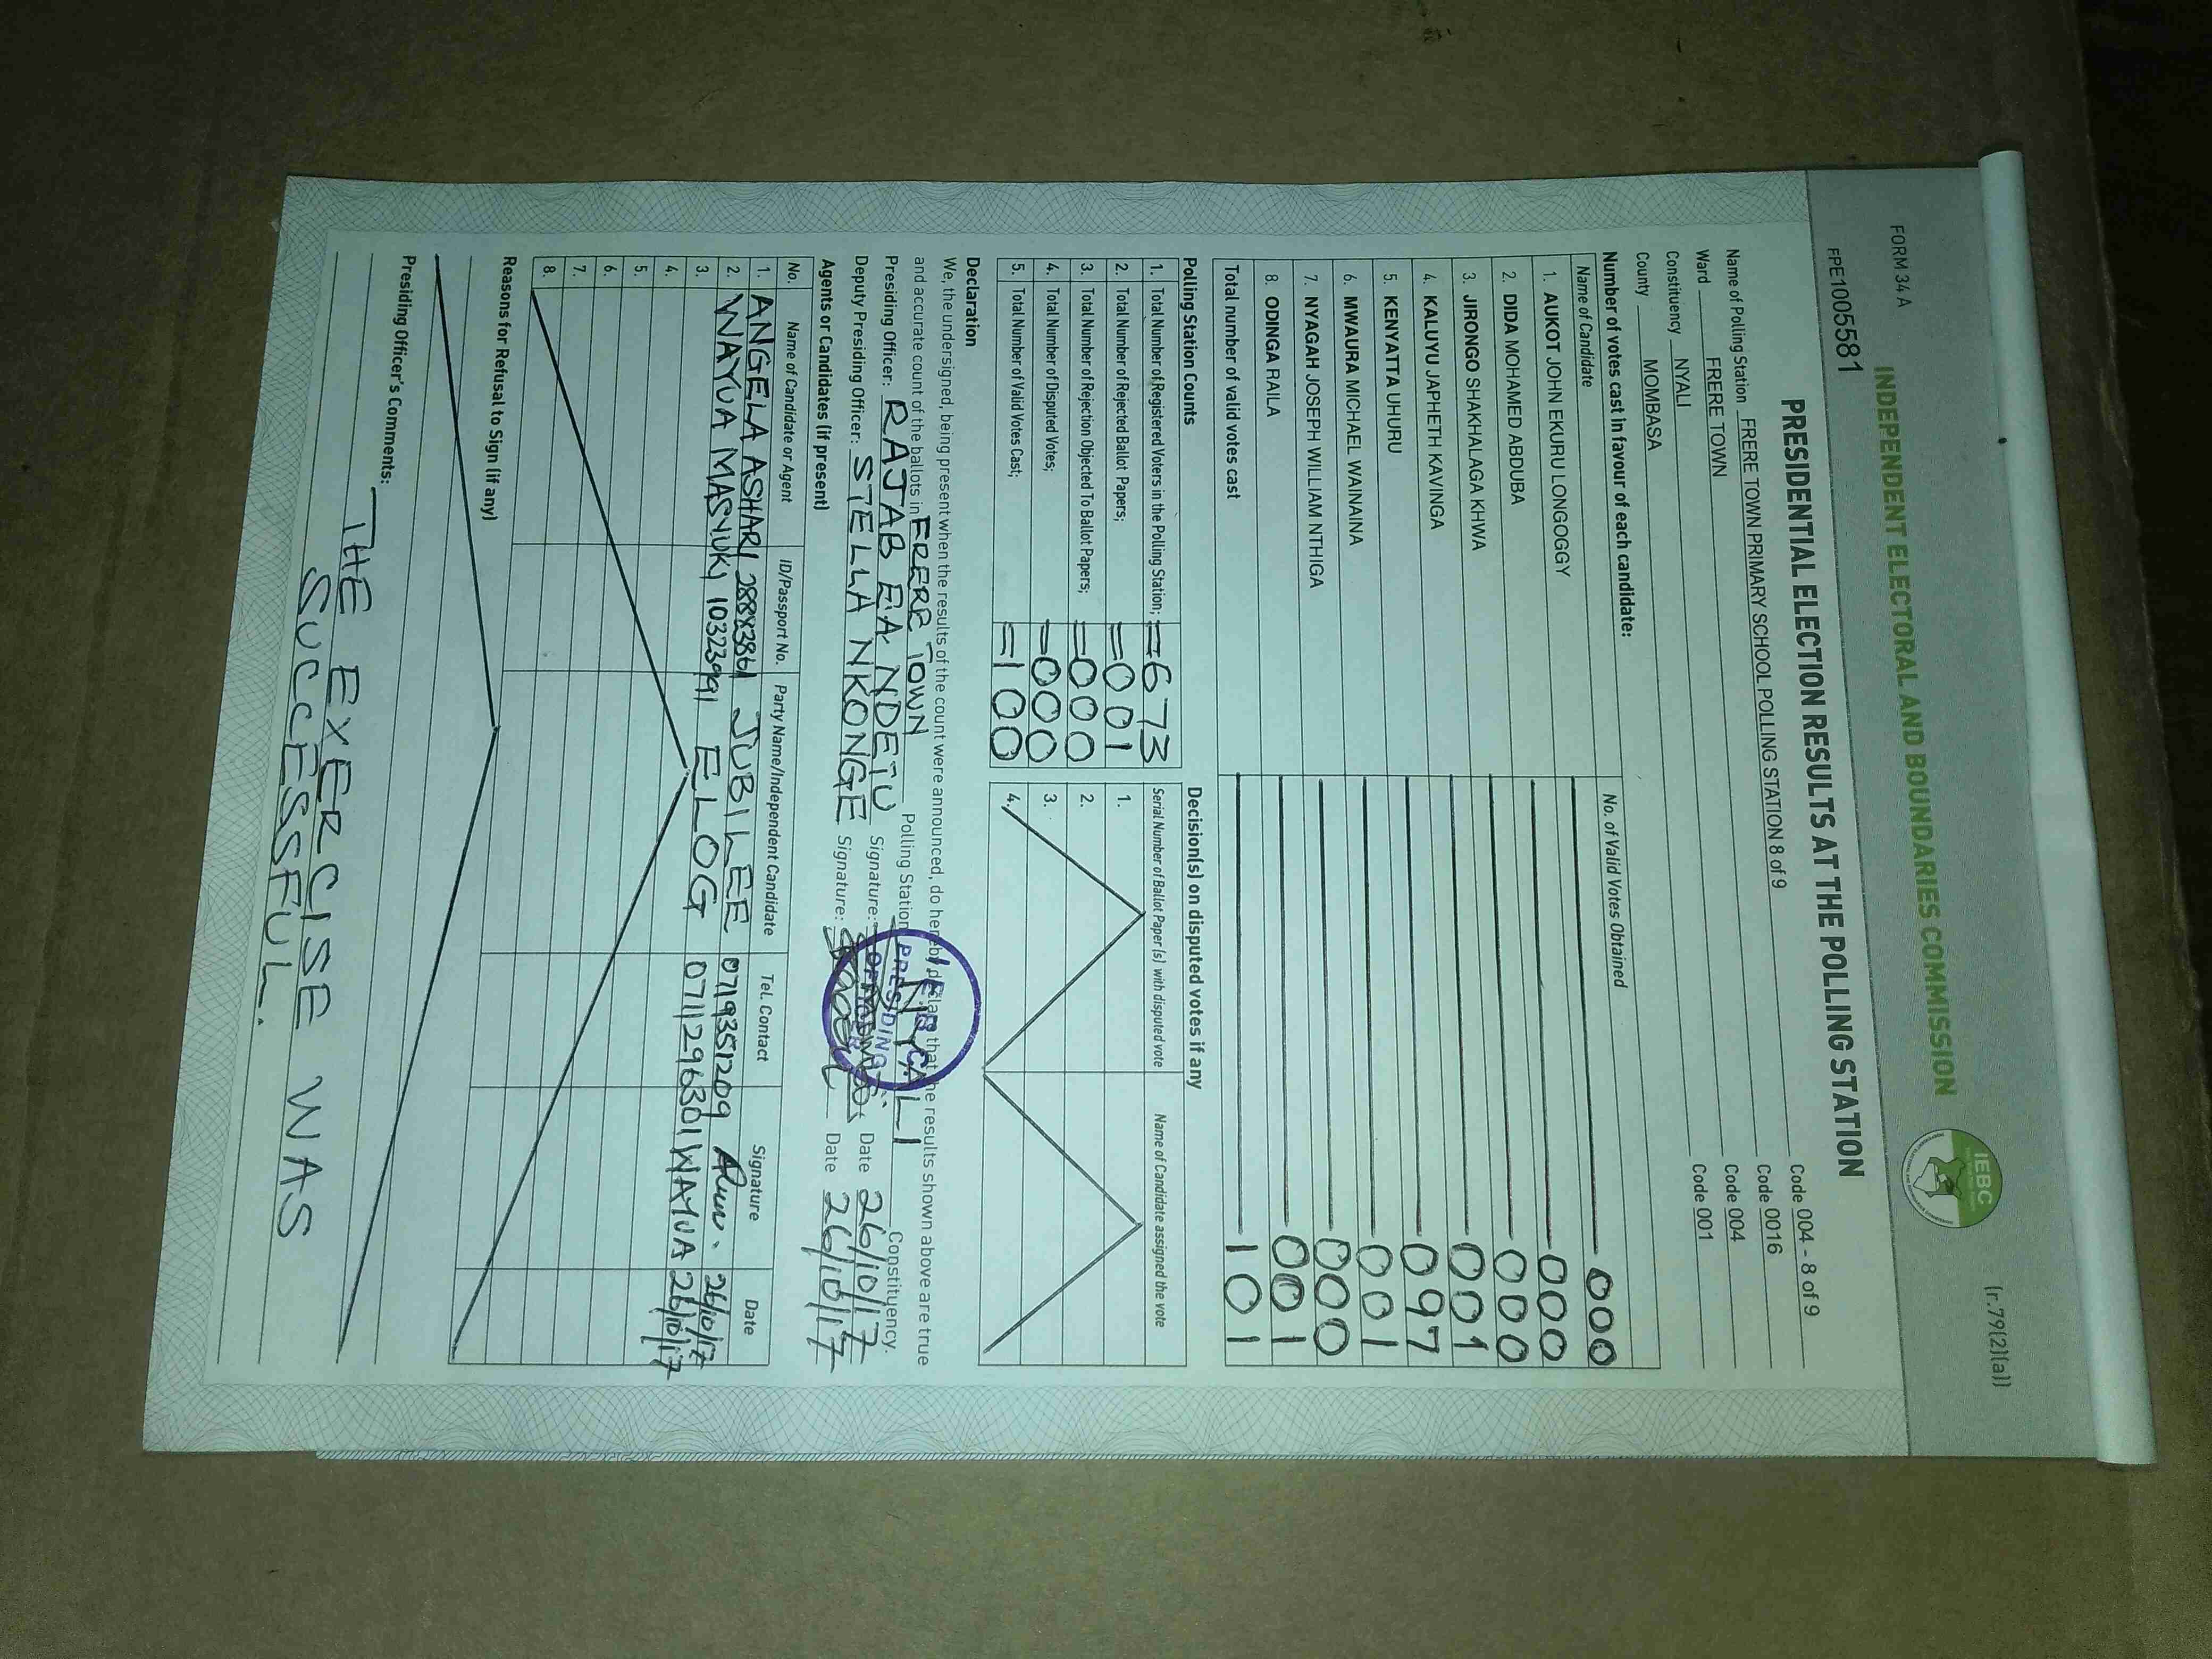 FORM 34 A
(r.79(2)(a))
INDEPENDENT ELECTORAL AND BOUNDARIES COMMISSION
IEBC
FPE1005581
PRESIDENTIAL ELECTION RESULTS AT THE POLLING STATION
Name of Polling Station FRERE TOWN PRIMARY SCHOOL POLLING STATION 8 of 9 Code 004 - 8 of 9
Ward FRERE TOWN Code 0016
Constituency NYALI Code 004
County MOMBASA Code 001
Number of votes cast in favour of each candidate:
Name of Candidate No. of Valid Votes Obtained
1. AUKOT JOHN EKURU LONGOGGY 000
2. DIDA MOHAMED ABDUBA 000
3. JIRONGO SHAKHALAGA KHWA 000
4. KALUYU JAPHETH KAVINGA 001
5. KENYATTA UHURU 097
6. MWAURA MICHAEL WAINAINA 001
7. NYAGAH JOSEPH WILLIAM NTHIGA 000
8. ODINGA RAILA 001
Total number of valid votes cast 101
Polling Station Counts Decision(s) on disputed votes if any
1. Total Number of Registered Voters in the Polling Station; =673
2. Total Number of Rejected Ballot Papers; =001
3. Total Number of Rejection Objected To Ballot Papers; =000
4. Total Number of Disputed Votes; =000
5. Total Number of Valid Votes Cast; =100
Serial Number of Ballot Paper (s) with disputed vote Name of Candidate assigned the vote
1.
2.
3.
4.
Declaration
We, the undersigned, being present when the results of the count were announced, do hereby declare that the results shown above are true
and accurate count of the ballots in FRERE TOWN Polling Station NYALI Constituency.
Presiding Officer: RAJAB EA NDETU Signature: Date 26/10/17
Deputy Presiding Officer: STELLA NKONGE Signature: Date 26/10/17
PRESIDING
Agents or Candidates (if present)
No. Name of Candidate or Agent ID/Passport No. Party Name/Independent Candidate Tel. Contact Signature Date
1. ANGELA ASHARI 28883861 JUBILEE 0719351209 26/10/17
2. WAYUA MASYUKI 10323991 ELOG 0711296301 WAYUA 26/10/17
3.
4.
5.
6.
7.
8.
Reasons for Refusal to Sign (if any)
Presiding Officer's Comments:
THE EXERCISE WAS
SUCCESSFUL.